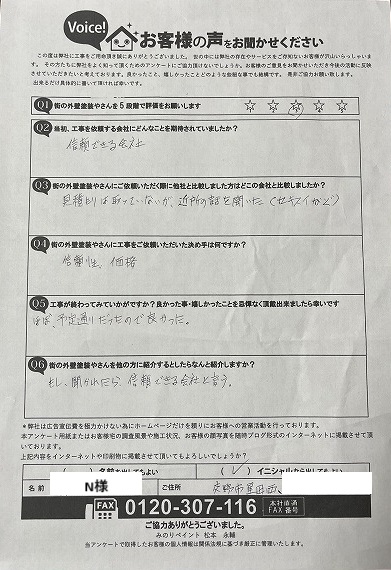 Voice!
お客様の声をお聞かせください
この度は弊社に工事をご用命頂き誠にありがとうございました。世の中には弊社の存在やサービスをご存知ないお客様が沢山いらっしゃいま
す。その方たちに弊社をよく知って頂くためのアンケートにご協力頂けないでしょうか。お客様のご意見をお聞かせいただき今後の活動に反映
させていただきたいと考えております。良かったこと、嬉しかったことどのような些細な事でも結構です。是非ご協力お願い致します。
出来るだけ具体的に書いて頂ければ幸いです。
Q1 街の外壁塗装やさんを5段階で評価をお願いします ☆ ☆ ☆ ☆ ☆
Q2 最初、工事を依頼する会社にどんなことを期待されていましたか?
信頼できる会社
Q3 街の外壁塗装やさんにご依頼いただく際に他社と比較しました方はどこの会社と比較しましたか?
見積りは取っていないが、近所の話を聞いた(セキスイかど)
Q4 街の外壁塗装やさんに工事をご依頼いただいた決め手は何ですか?
信頼性、価格
Q5 工事が終わってみていかがですか?良かった事・嬉しかったことを忌憚なく頂戴出来ましたら幸いです
ほぼ、予定通りだったので良かった。
Q6 街の外壁塗装やさんを他の方に紹介するとしたらなんと紹介しますか?
もし、聞かれたら、信頼できる会社と言う。
*弊社は広告宣伝費を極力かけない為にホームページだけを頼りにお客様への営業活動を行っております。
本アンケート用紙またはお客様宅の調査風景や施工状況、お客様の顔写真を随時ブログ形式のインターネットに掲載させて頂
いております。
上記内容をインターネットや印刷物に掲載させて頂いてもよろしいでしょうか?
( ) 名前を出してもよい (✓) イニシャルなら出してもよい
名前 N様 ご住所 交野市星田西
FAX 0120-307-116 本社直通 FAX番号
ご協力ありがとうございました。
みのりペイント 松本 永輔
当アンケートで取得したお客様の個人情報は関係法規に基づき厳正に管理いたします。